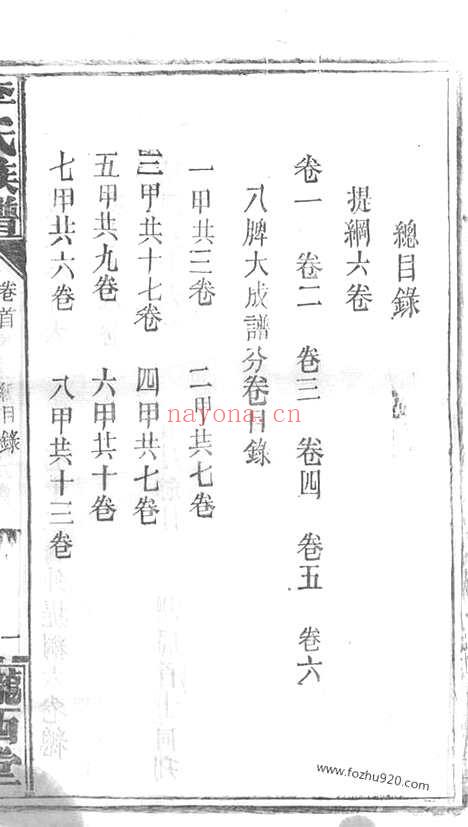 總目錄
提綱六卷
卷一 卷二 卷三 卷四 卷五 卷六
八牌大成譜分卷目錄
一甲共三卷 二甲共七卷
三甲共十七卷 四甲共七卷
五甲共九卷 六甲共十卷
七甲共六卷 八甲共十三卷
李氏族譜 卷首 總目錄 一 隴西堂
nayona.cn
www.fozhu920.com